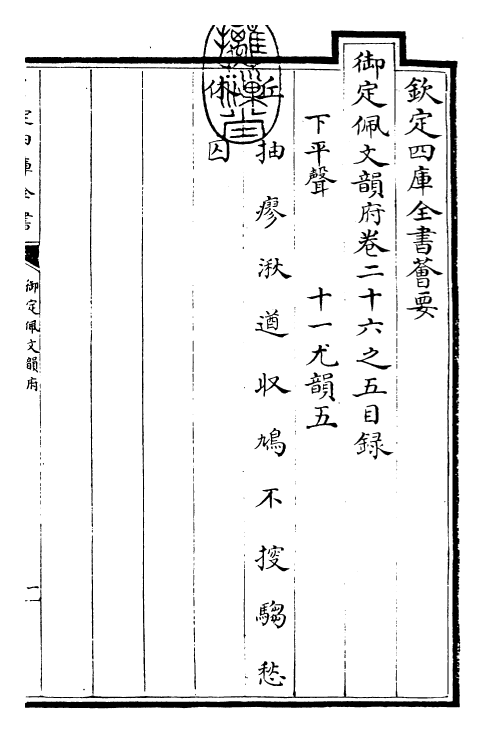 欽定四庫全書薈要
御定佩文韻府卷二十六之五目録
下平聲　十一尤韻五
丘抽瘳湫遒収鳩不搜騶愁
休囚
定四庫全書
御定佩文韻府
一